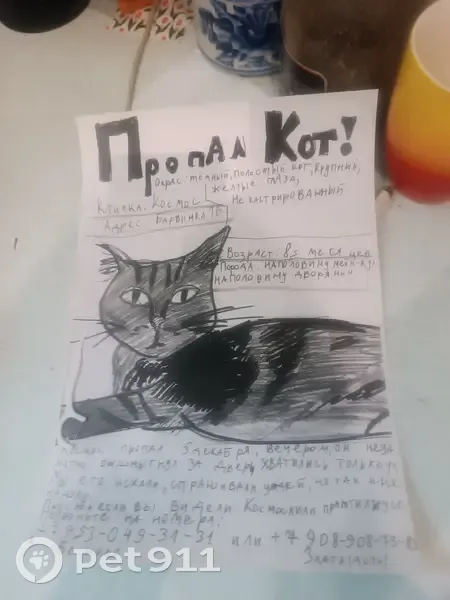 Пропал Кот!
Окрас: темный, полосатый кот, крупный,
желтые глаза,
Не кастрированный
Кличка: Космос
Адрес: Барвинка
Возраст: 8,5 месяцев
Порода: наполовину мейн-ку
наполовину дворянин
пропал 5 декабря, вечером, он неза
за дверь хватились только
его искали, спрашивали людей, но так и не
если вы видели Космоса или
на номера:
953-049-31-31 или +7 908-908-73-
pet911